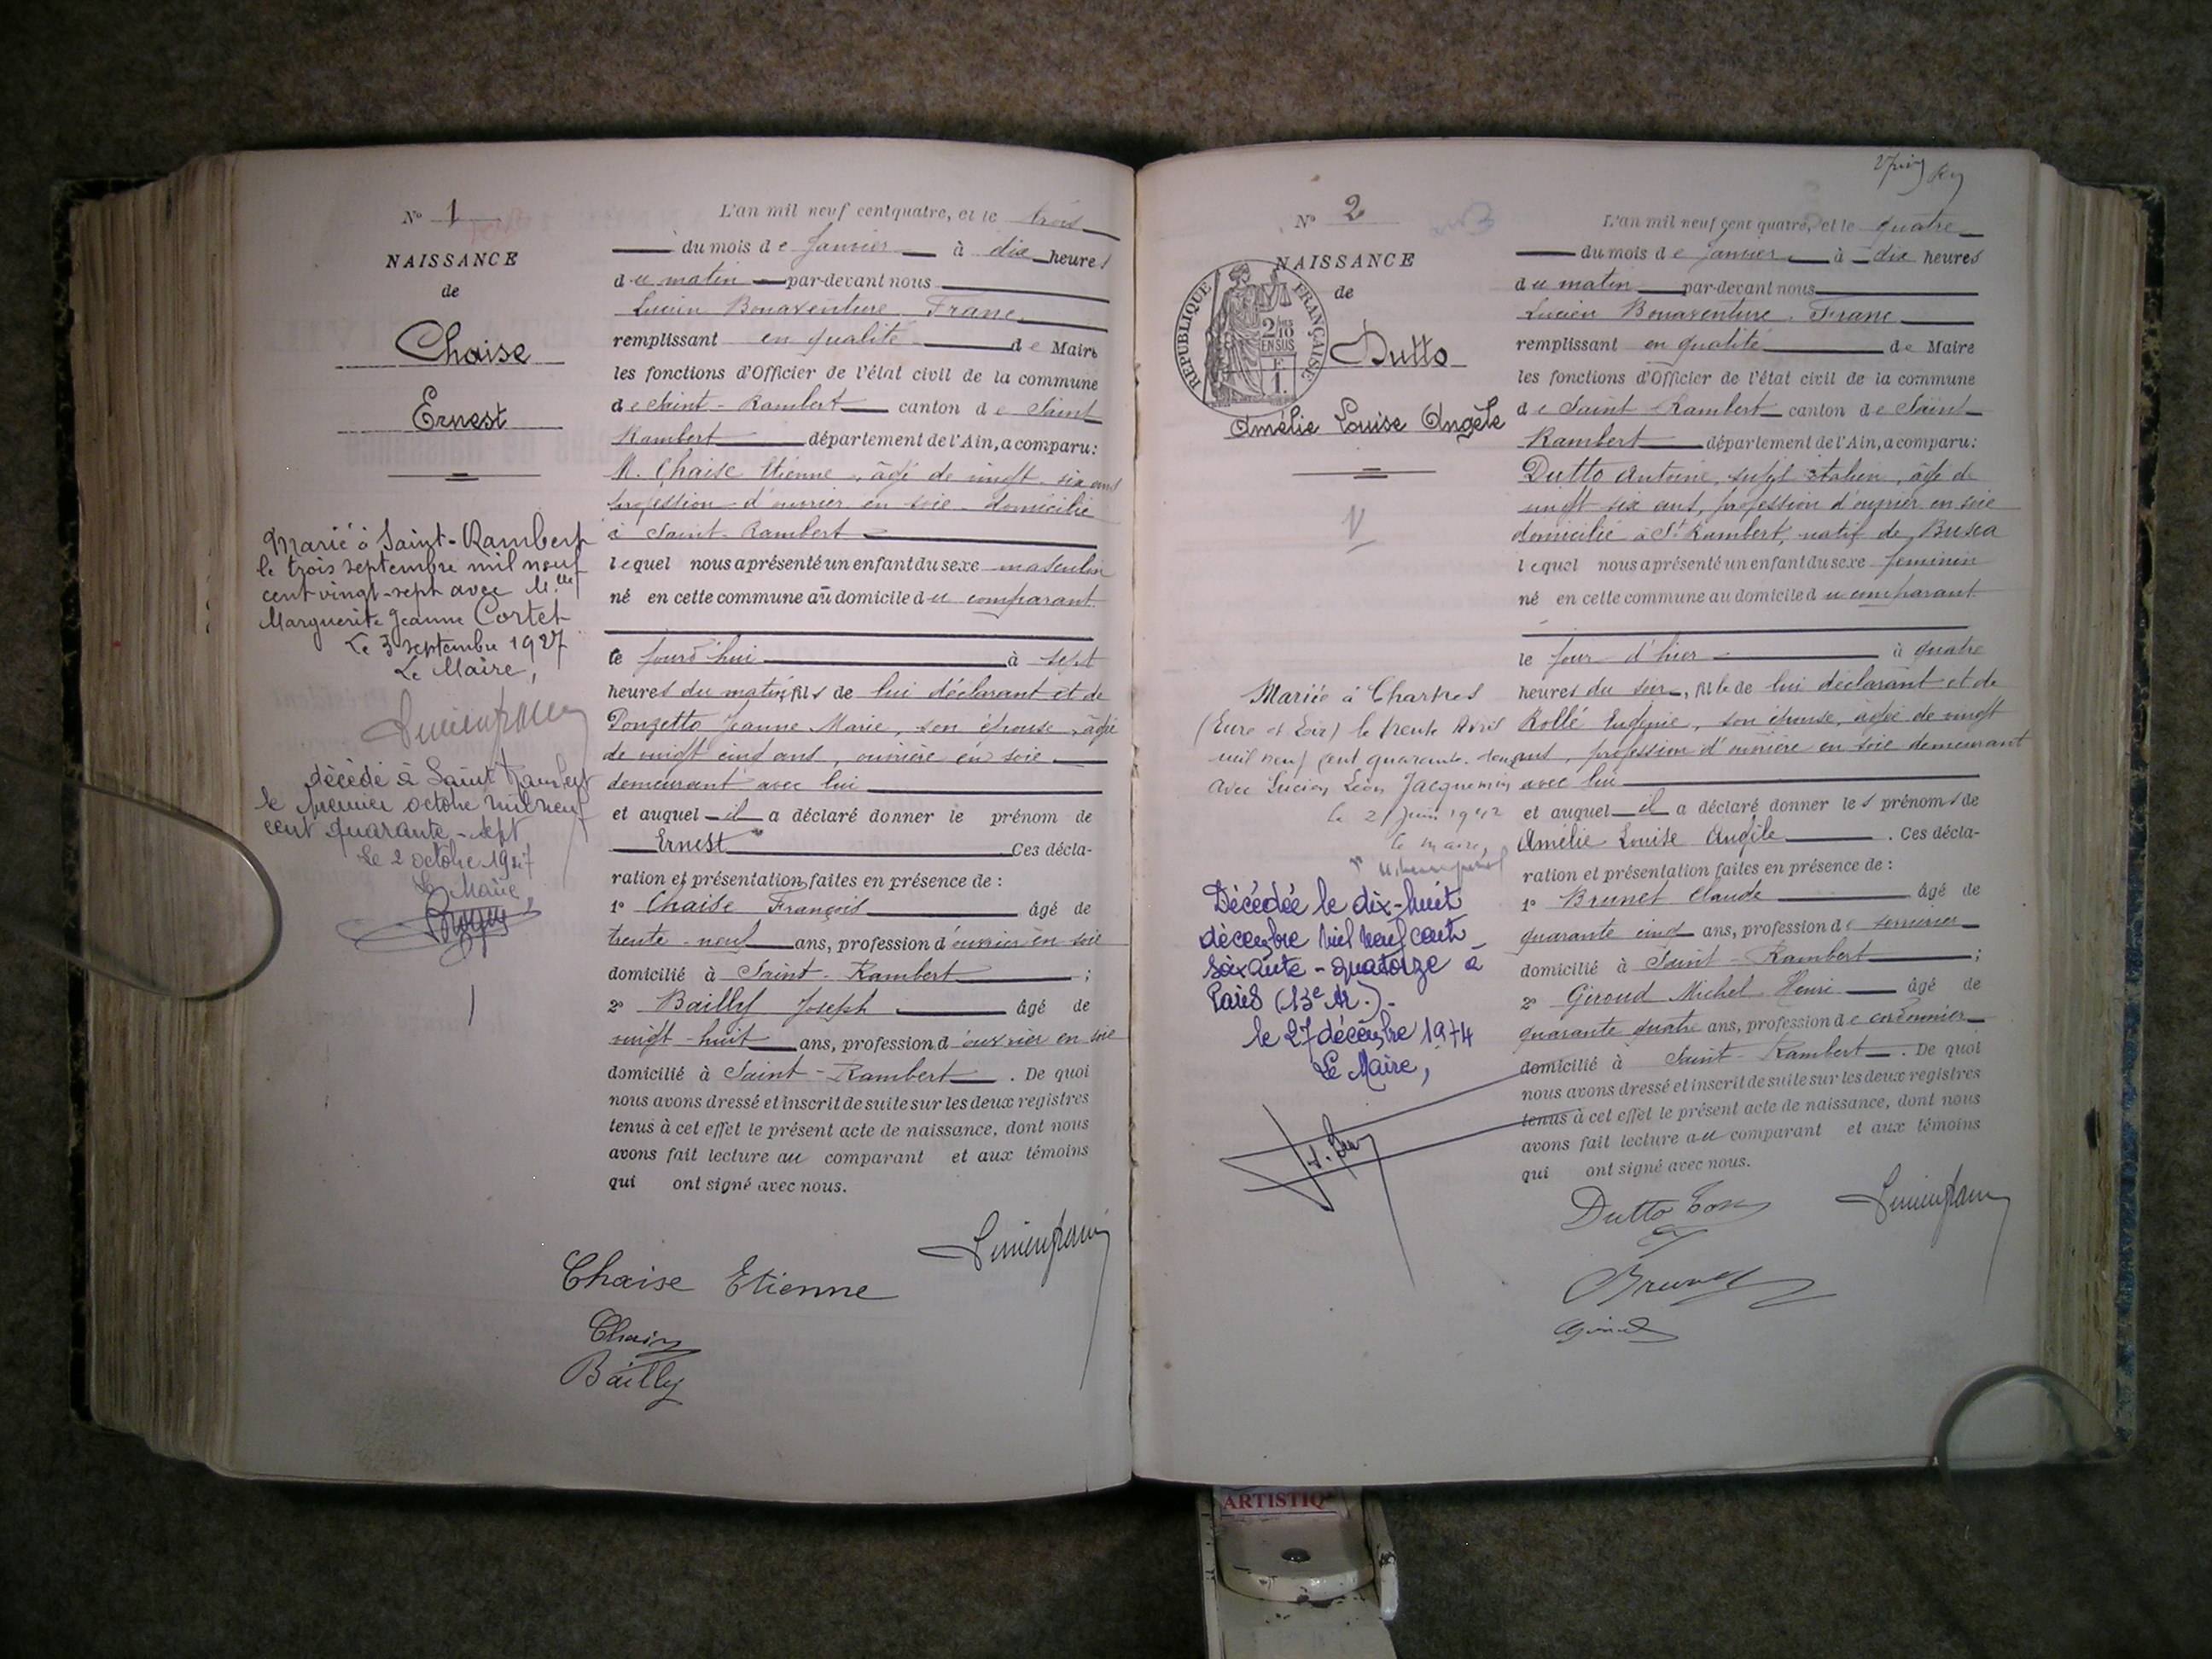 N° 1
NAISSANCE
de
Chaise
Ernest
Marié à Saint-Rambert
le trois septembre mil neuf
cent vingt-sept avec M.elle
Marguerite Jeanne Cortet
Le 3 septembre 1927
Le Maire,
décédé à Saint Rambert
le premier octobre mil neuf
cent quarante-sept
Le 2 octobre 1947
Le Maire
L'an mil neuf cent quatre, et le trois
du mois de Janvier à dix heures
du matin par-devant nous
Lucien Bonaventure Franc
remplissant en qualité de Maire
les fonctions d'Officier de l'état civil de la commune
de Saint-Rambert canton de Saint
Rambert département de l'Ain, a comparu:
M. Chaise Etienne, âgé de vingt-six ans
profession d'ouvrier en soie domicilié
à Saint-Rambert
lequel nous a présenté un enfant du sexe masculin
né en cette commune au domicile du comparant
le jourd'hui à sept
heures du matin, fils de lui déclarant et de
Ponzetto Jeanne Marie, son épouse, âgée
de vingt cinq ans, ouvrière en soie
demeurant avec lui
et auquel il a déclaré donner le prénom de
Ernest Ces décla-
ration et présentation faites en présence de :
1° Chaise François âgé de
trente-neuf ans, profession d'ouvrier en soie
domicilié à Saint-Rambert ;
2° Bailly Joseph âgé de
vingt-huit ans, profession d'ouvrier en soie
domicilié à Saint-Rambert . De quoi
nous avons dressé et inscrit de suite sur les deux registres
tenus à cet effet le présent acte de naissance, dont nous
avons fait lecture au comparant et aux témoins
qui ont signé avec nous.
Lucien Franc
Chaise Etienne
Bailly
N° 2
NAISSANCE
de
RÉPUBLIQUE FRANÇAISE
2/10
EN SUS
F.
1.
Dutto
Amélie Louise Angèle
Mariée à Chartres
(Eure et Loir) le trente Avril
mil neuf cent quarante-deux
avec Lucien Léon Jacquemin
le 2 Juin 1942
le maire,
Décédée le dix-huit
décembre mil neuf cent
soixante-quatorze à
Paris (13e Ar.).
le 27 décembre 1974
Le Maire,
L'an mil neuf cent quatre, et le quatre
du mois de Janvier à dix heures
du matin par-devant nous
Lucien Bonaventure Franc
remplissant en qualité de Maire
les fonctions d'Officier de l'état civil de la commune
de Saint-Rambert canton de Saint
Rambert département de l'Ain, a comparu:
Dutto Antoine, sujet italien, âgé de
vingt six ans, profession d'ouvrier en soie
domicilié à St Rambert, natif de Busca
lequel nous a présenté un enfant du sexe féminin
né en cette commune au domicile du comparant
le jour d'hier à quatre
heures du soir, fille de lui déclarant et de
Rollé Eugénie, son épouse, âgée de vingt
ans, profession d'ouvrière en soie demeurant
avec lui
et auquel il a déclaré donner les prénoms de
Amélie Louise Angèle . Ces décla-
ration et présentation faites en présence de :
1° Brunet Claude âgé de
quarante cinq ans, profession de serrurier
domicilié à Saint-Rambert ;
2° Giroud Michel Henri âgé de
quarante quatre ans, profession de cordonnier
domicilié à Saint-Rambert . De quoi
nous avons dressé et inscrit de suite sur les deux registres
tenus à cet effet le présent acte de naissance, dont nous
avons fait lecture au comparant et aux témoins
qui ont signé avec nous.
Dutto
Lucien Franc
Brunet
ARTISTIQ